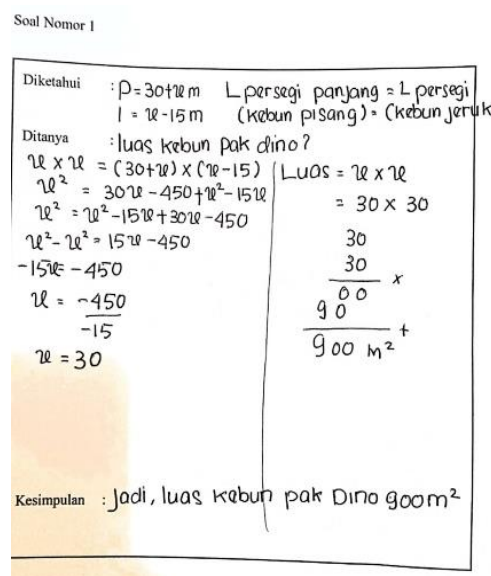 Soal Nomor 1
Diketahui : P = 30+x m L persegi panjang = L persegi
l = x - 15 m (kebun pisang) = (kebun jeruk
Ditanya : luas kebun Pak dino?
x × x = (30+x) × (x-15)
x² = 30x - 450 + x² - 15x
x² = x² - 15x + 30x - 450
x² - x² = 15x - 450
-15x = -450
x = -450
-15
x = 30
Luas = x × x
= 30 × 30
30
30
×
00
90
+
900 m²
Kesimpulan : Jadi, luas kebun pak Dino 900m²